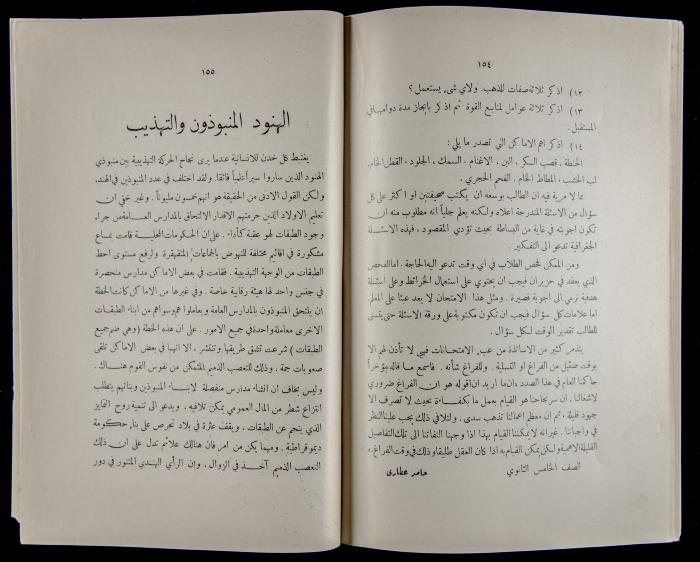 ١٥٤
١٢) اذكر ثلاثة صفات للذهب. ولاي شيء يستعمل ؟
١٣) اذكر ثلاثة عوامل لمنابع القوة ثم اذكر بايجاز مدة دوامها في
المستقبل .
١٤) اذكر اهم الاماكن التي تصدر ما يلي :
الحنطة ، قصب السكر ، البن ، الاغنام ، السمك ، الجلود ، القطن الخام،
لب الخشب ، المطاط الخام ، الفحم الحجري .
مما لا مرية فيه ان الطالب بوسعه ان يكتب صحيفتين او اكثر على كل
سؤال من الاسئلة المندرجة اعلاه ولكنه يعلم جلياً انه مطلوب منه ان
تكون اجوبته في غاية من البساطة بحيث تؤدي المقصود ، فهذه الاسئلة
الجغرافية تدعو الى التفكير .
ومن الممكن فحص الطلاب في اي وقت تدعو اليه الحاجة . اما الفحص
الذي يعقد في حزيران فيجب ان يحتوي على استعمال الخرائط وعلى اسئلة
هدفية ترمي الى اجوبة قصيرة . ومثل هذا الامتحان لا يعد عبئا على المعلم
اما علامات كل سؤال فيجب ان تكون مكتوبة على ورقة الاسئلة حتى يتسنى
للطالب تقدير الوقت لكل سؤال .
يتذمر كثير من الاساتذة من عبء الامتحانات فهي لا تأذن لهم الا
بوقت ضئيل من الفراغ او التسلية . وللفراغ شأنه . فاسمع ما قاله مؤخراً
حاكمنا العام في هذا الصدد «ان ما اريد ان اقوله هو ان الفراغ ضروري
لاشغالنا . ان سر نجاحنا هو القيام بعمل ما بكفاءة بحيث لا تصرف الا
جهود قليلة ، ثم ان معظم اعمالنا تذهب سدى . ولتلافي ذلك يجب علينا النظر
في واجباتنا . غير انه لا يمكننا القيام بهذا اذا وجهنا التفاتنا الى تلك التفاصيل
القليلة الاهمية ولكن يمكن القيام به اذا كان العقل طليقا وذلك في وقت الفراغ.»
الصف الخامس الثانوي
عطاري
١٥٥
الهنود المنبوذون والتهذيب
يغتبط كل خدن للانسانية عندما يرى نجاح الحركة التهذيبية بين منبوذي
الهنود الذين ساروا سيراً علمياً فائقا. ولقد اختلف في عدد المنبوذين في الهند،
ولكن القول الادنى من الحقيقة هو انهم خمسون مليوناً . وغير خفي ان
تعليم الاولاد الذين حرمتهم الاقدار الالتحاق بالمدارس العامة من جراء
وجود الطبقات لهو عقبة كأداء . على ان الحكومات المحلية قامت بمساع
مشكورة في اقاليم مختلفة للنهوض بالجماعات المتقهقرة ولرفع مستوى احط
الطبقات من الوجهة التهذيبية . فقامت في بعض الاماكن مدارس منحصرة
في جنس واحد لها هيئة رقابية خاصة . وفي غيرها من الاماكن كانت الخطة
ان يلتحق المنبوذون بالمدارس العامة ويعاملوا هم وسواهم من ابناء الطبقات
الاخرى معاملة واحدة في جميع الامور . على ان هذه الخطة (وهي ضم جميع
الطبقات ) شرعت تشق طريقها وتنتشر ، الا انها في بعض الاماكن تلقى
صعوبات جمة ، وذلك للتعصب الذميم المتمكن من نفوس القوم هناك .
وليس بخاف ان انشاء مدارس منفصلة لابناء المنبوذين وبناتهم يتطلب
انتزاع شطر من المال العمومي يمكن تلافيه . ويدعو الى تنمية روح التمايز
الذي ينجم عن الطبقات ، ويقف عثرة في بلاد تحرص على بناء حكومة
ديموقراطية . ومهما يكن من امر فان هنالك علائم تدل على ان ذلك
التعصب الذميم آخذ في الزوال . وان الرأي الهندي المتنور في دور